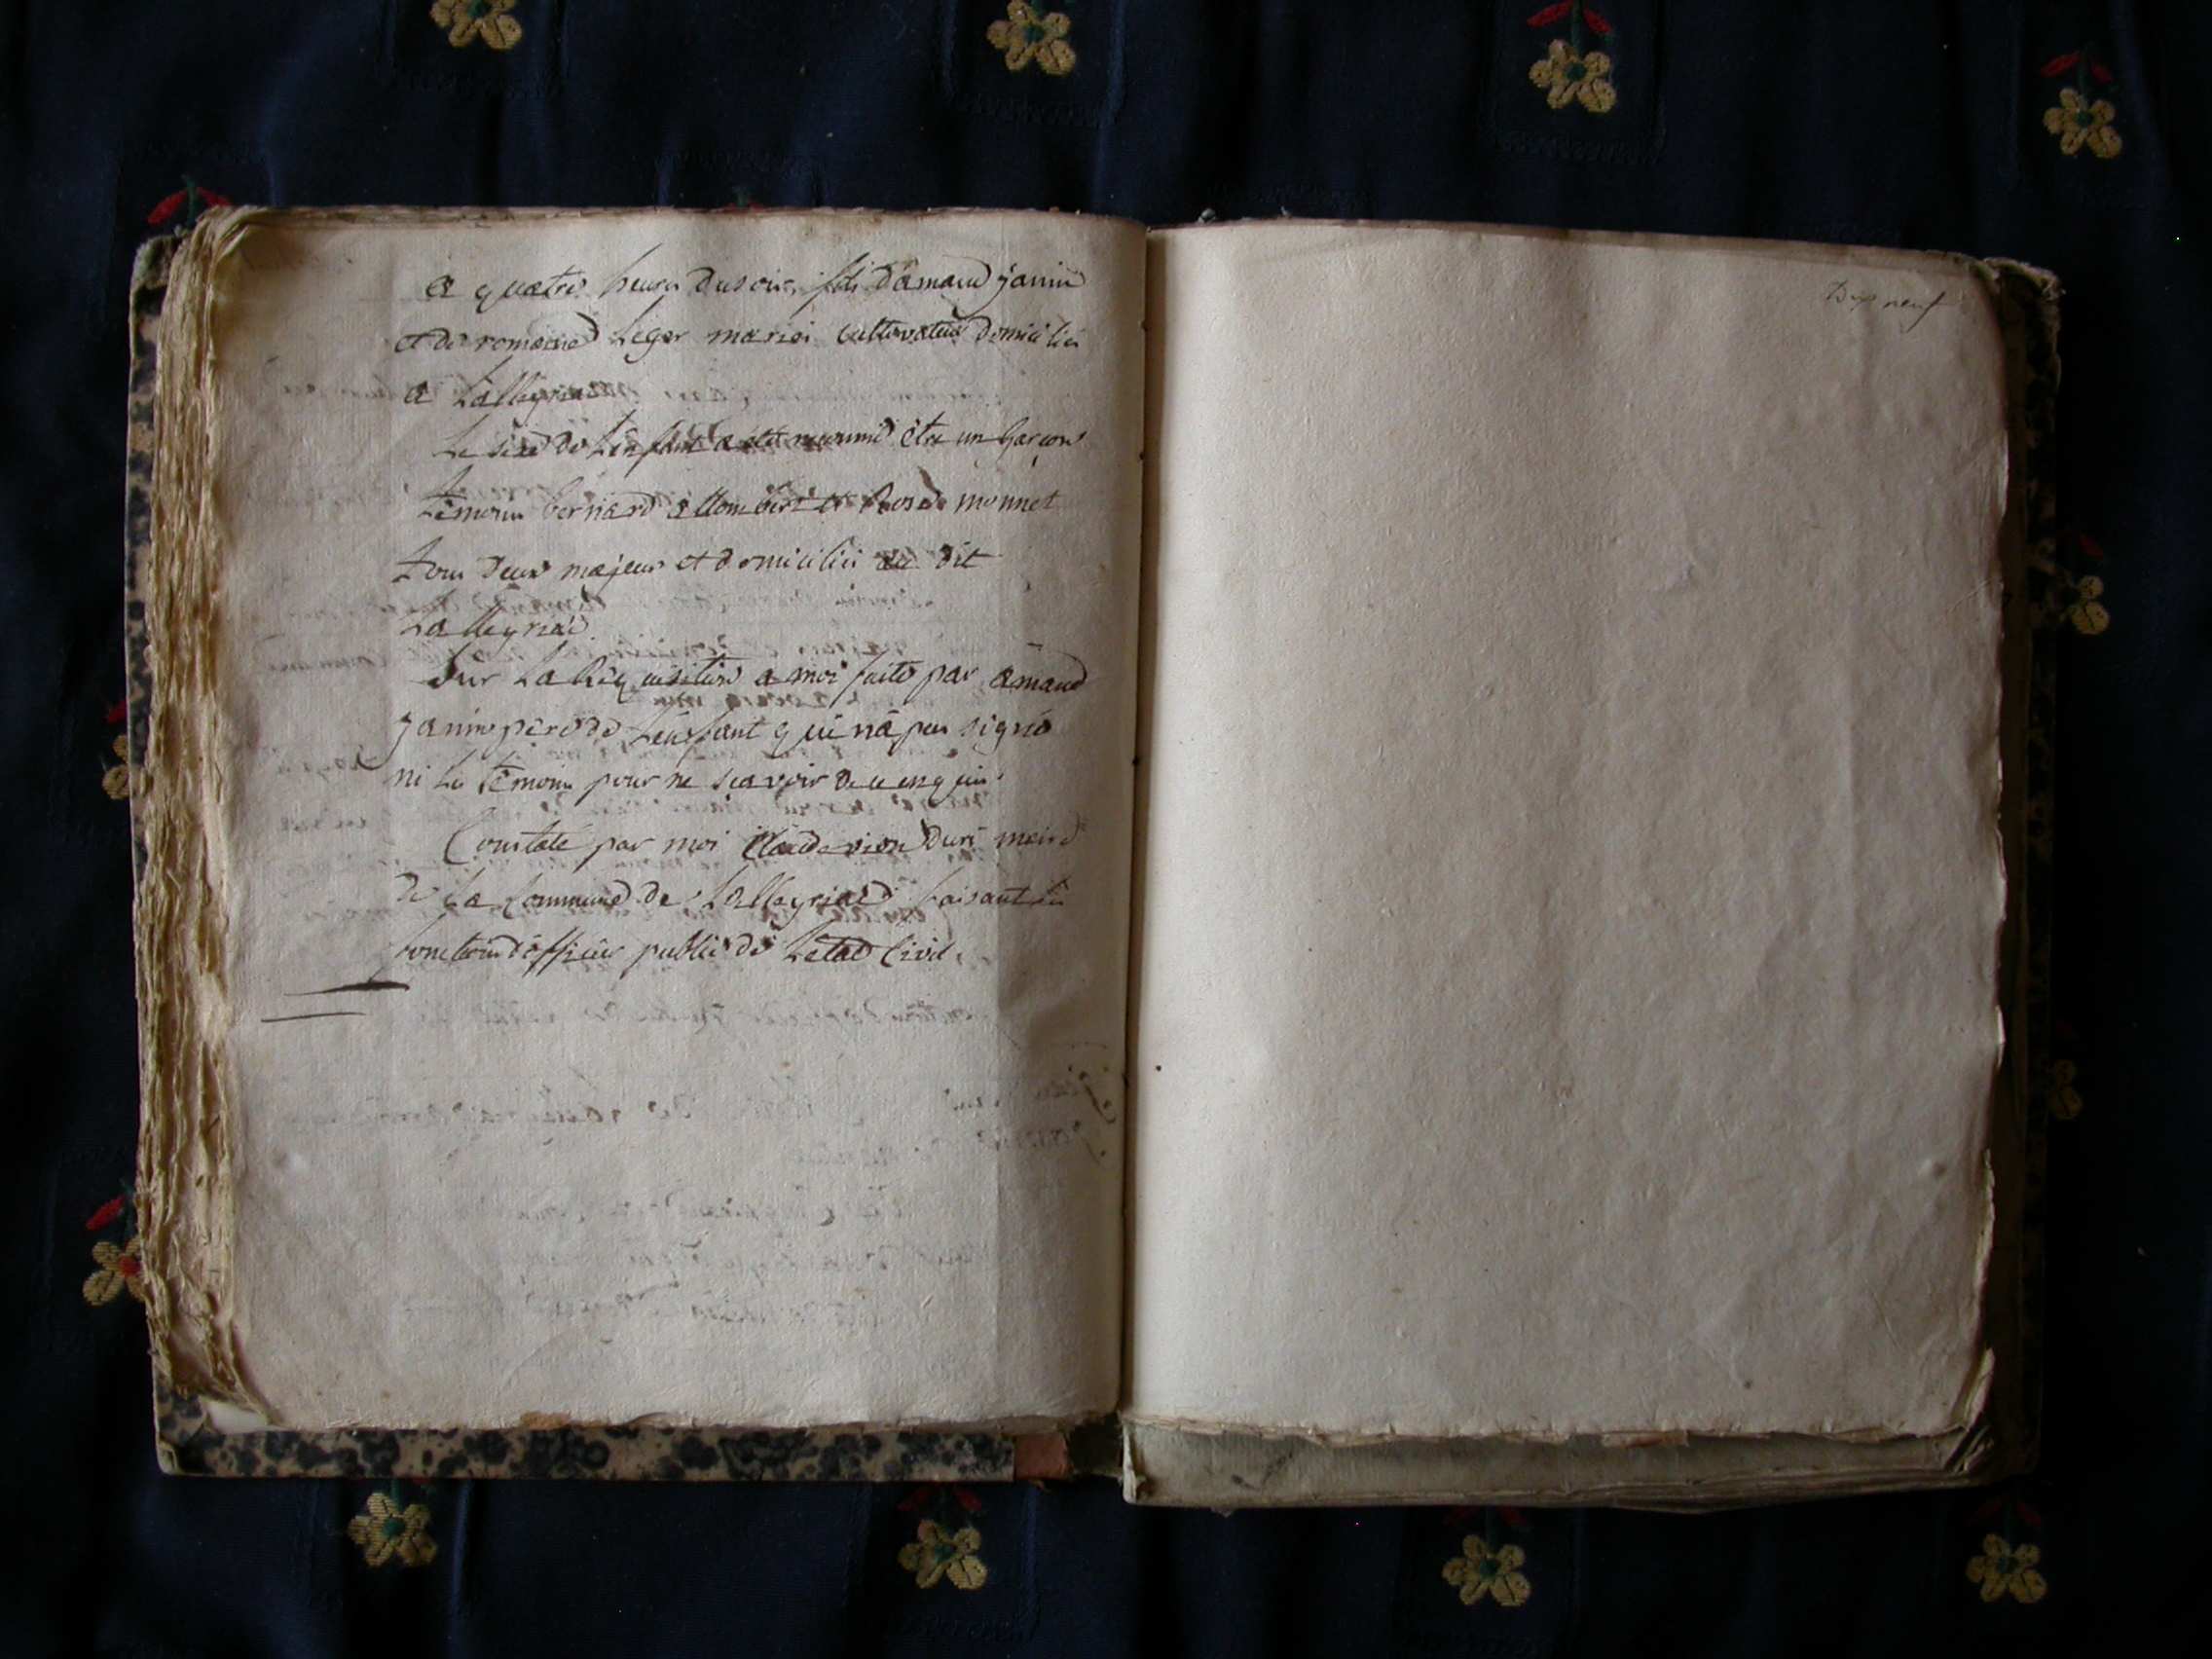 a quatre heures du soir, fils d'amand janin
et de romaine Leger mariés cultivateurs domiciliés
a Lalleyriat
Le sexe de Lenfant a eté reconnu être un Garçon
Témoins bernard allombert et Rose monnet
tous deux majeurs et domiciliés au dit
Lalleyriat
Sur La Réquisition a moi faite par amand
janin pere de Lenfant qui n'a peu signé
ni Les témoins pour ne scavoir de ce enquis
Constaté par moi Claude vion Duri maire
de La Commune de Lalleyriat faisant les
fonctions d'officier public de Létat Civil.
Dix neuf